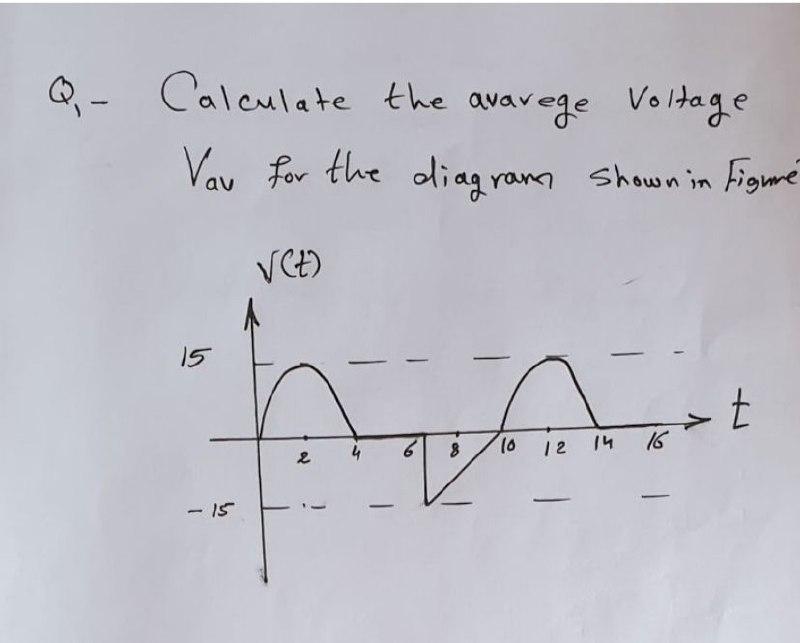 Q1- Calculate the avarege Voltage
Vav for the diagram shown in Figure
V(t)
15
t
2 4 6 8 10 12 14 16
-15